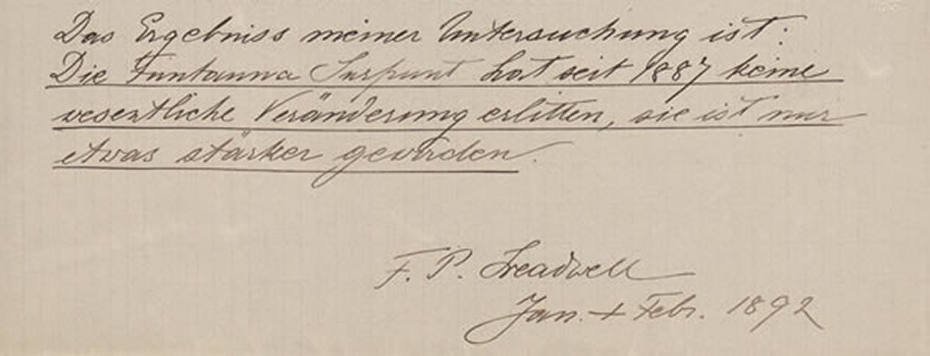 Das Ergebniss meiner Untersuchung ist:
Die Funtauna Surpunt hat seit 1887 keine
wesentliche Veränderung erlitten, sie ist nur
etwas stärker geworden.
F. P. Treadwell
Jan. + Febr. 1892